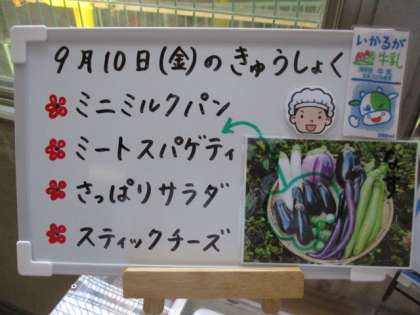 9月10日(金)のきゅうしょく
ミニミルクパン
ミートスパゲティ
さっぱりサラダ
スティックチーズ
いかるが
牛乳